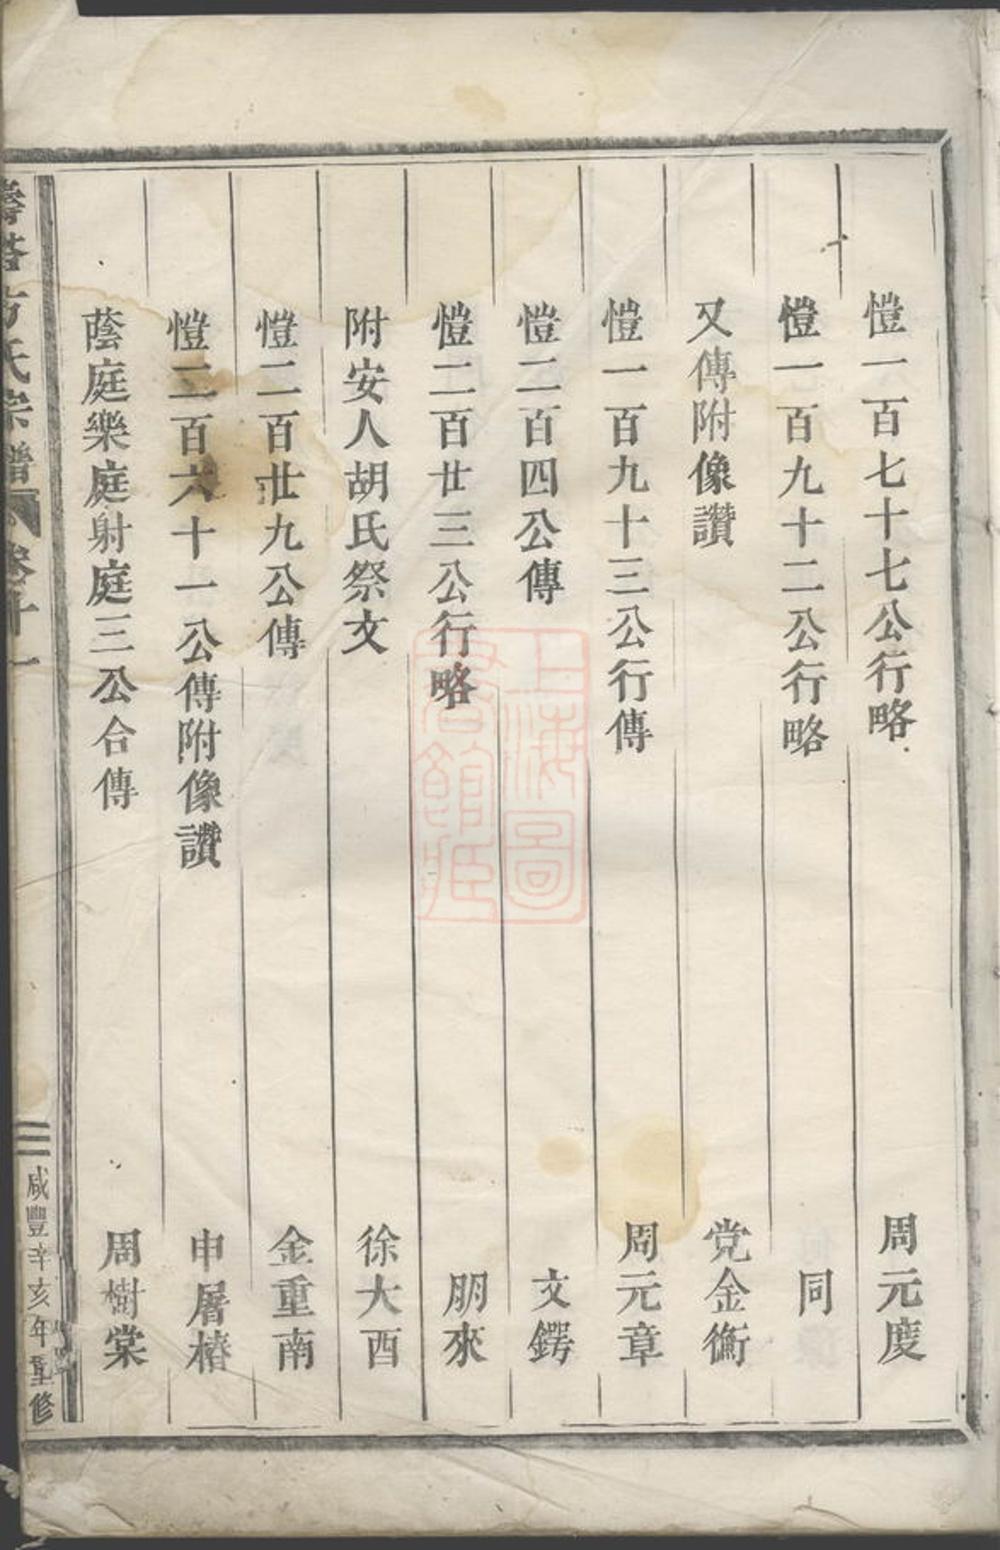 愷一百七十七公行略 周元度
愷一百九十二公行略 同
又傳附像讚 党金衡
愷一百九十三公行傳 周元章
愷二百四公傳 文鍔
愷二百廿三公行略 朋來
附安人胡氏祭文 徐大酉
愷二百廿九公傳 金重南
愷二百六十一公傳附像讚 申屠椿
蔭庭樂庭射庭三公合傳 周樹棠
方氏宗譜 卷十一 三 咸豐辛亥年重修
上海圖
書館藏